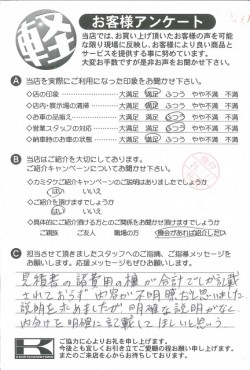 軽
お客様アンケート
当店では、お買い上げ頂いたお客様の声を可能
な限り現場に反映し、お客様により良い商品と
サービスを提供する事に努めています。
大変お手数ですが是非お声をお聞かせ下さい。
A 当店を実際にご利用になった印象をお聞かせ下さい。
◇店の印象 大満足 満足 ふつう やや不満 不満
◇店内・展示場の清掃 大満足 満足 ふつう やや不満 不満
◇お車の品揃え 大満足 満足 ふつう やや不満 不満
◇営業スタッフの対応 大満足 満足 ふつう やや不満 不満
大満足 満足 ふつう やや不満 不満
B 当店はご紹介を大切にしてあります。
ご紹介キャンペーンについてお聞かせ下さい。
◇カミタケご紹介キャンペーンのご説明はありましたでしょうか
はい いいえ
◇ご紹介を頂けますでしょうか
はい いいえ
◇具体的にご紹介頂ける方とのご関係をお聞かせ頂けますでしょうか
ご親族 ご友人 職場の方 機会があれば紹介したい
C 担当させて頂きましたスタッフへのご指摘、ご指導メッセージを
お願いします。応援メッセージもぜひお願いします。
見積書の諸費用の欄が合計でしか記載
されておらず内容が不明瞭だと思いました
説明を求めましたが明確な説明がなく
内分けを明確に記載してほしいと思う
ご協力に心よりお礼を申し上げます。
今後とも宜しくお引き立てご愛顧の程お願い申し上げます。
またのご来店を心からお待ちしております。